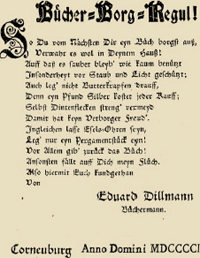 Bücher=Borg=Regul!
So Du vom Nächsten Dir eyn Büch borgst auß,
Verwahr es wol in Deynem Hauß!
Auff daß es sauber bleyb' wie kaum benützt
Insonderheyt vor Staub und Licht geschützt;
Auch leg' nicht Butterkrapfen drauff,
Denn eyn Pfund Silber kostet jeder Kauff;
Selbst Dintenflecken streng' vermeyd
Damit hat keyn Verborger Freud'.
Ingleichen lasse Esels-Ohren seyn,
Leg' nur eyn Pergamentstück eyn!
Vor Allem gib' zurück das Büch!
Ansonsten fällt auff Dich meyn Flüch.
Also hiermit Euch kundgethan
Von
Eduard Dillmann
Büchermann.
Corneuburg Anno Domini MDCCCCI